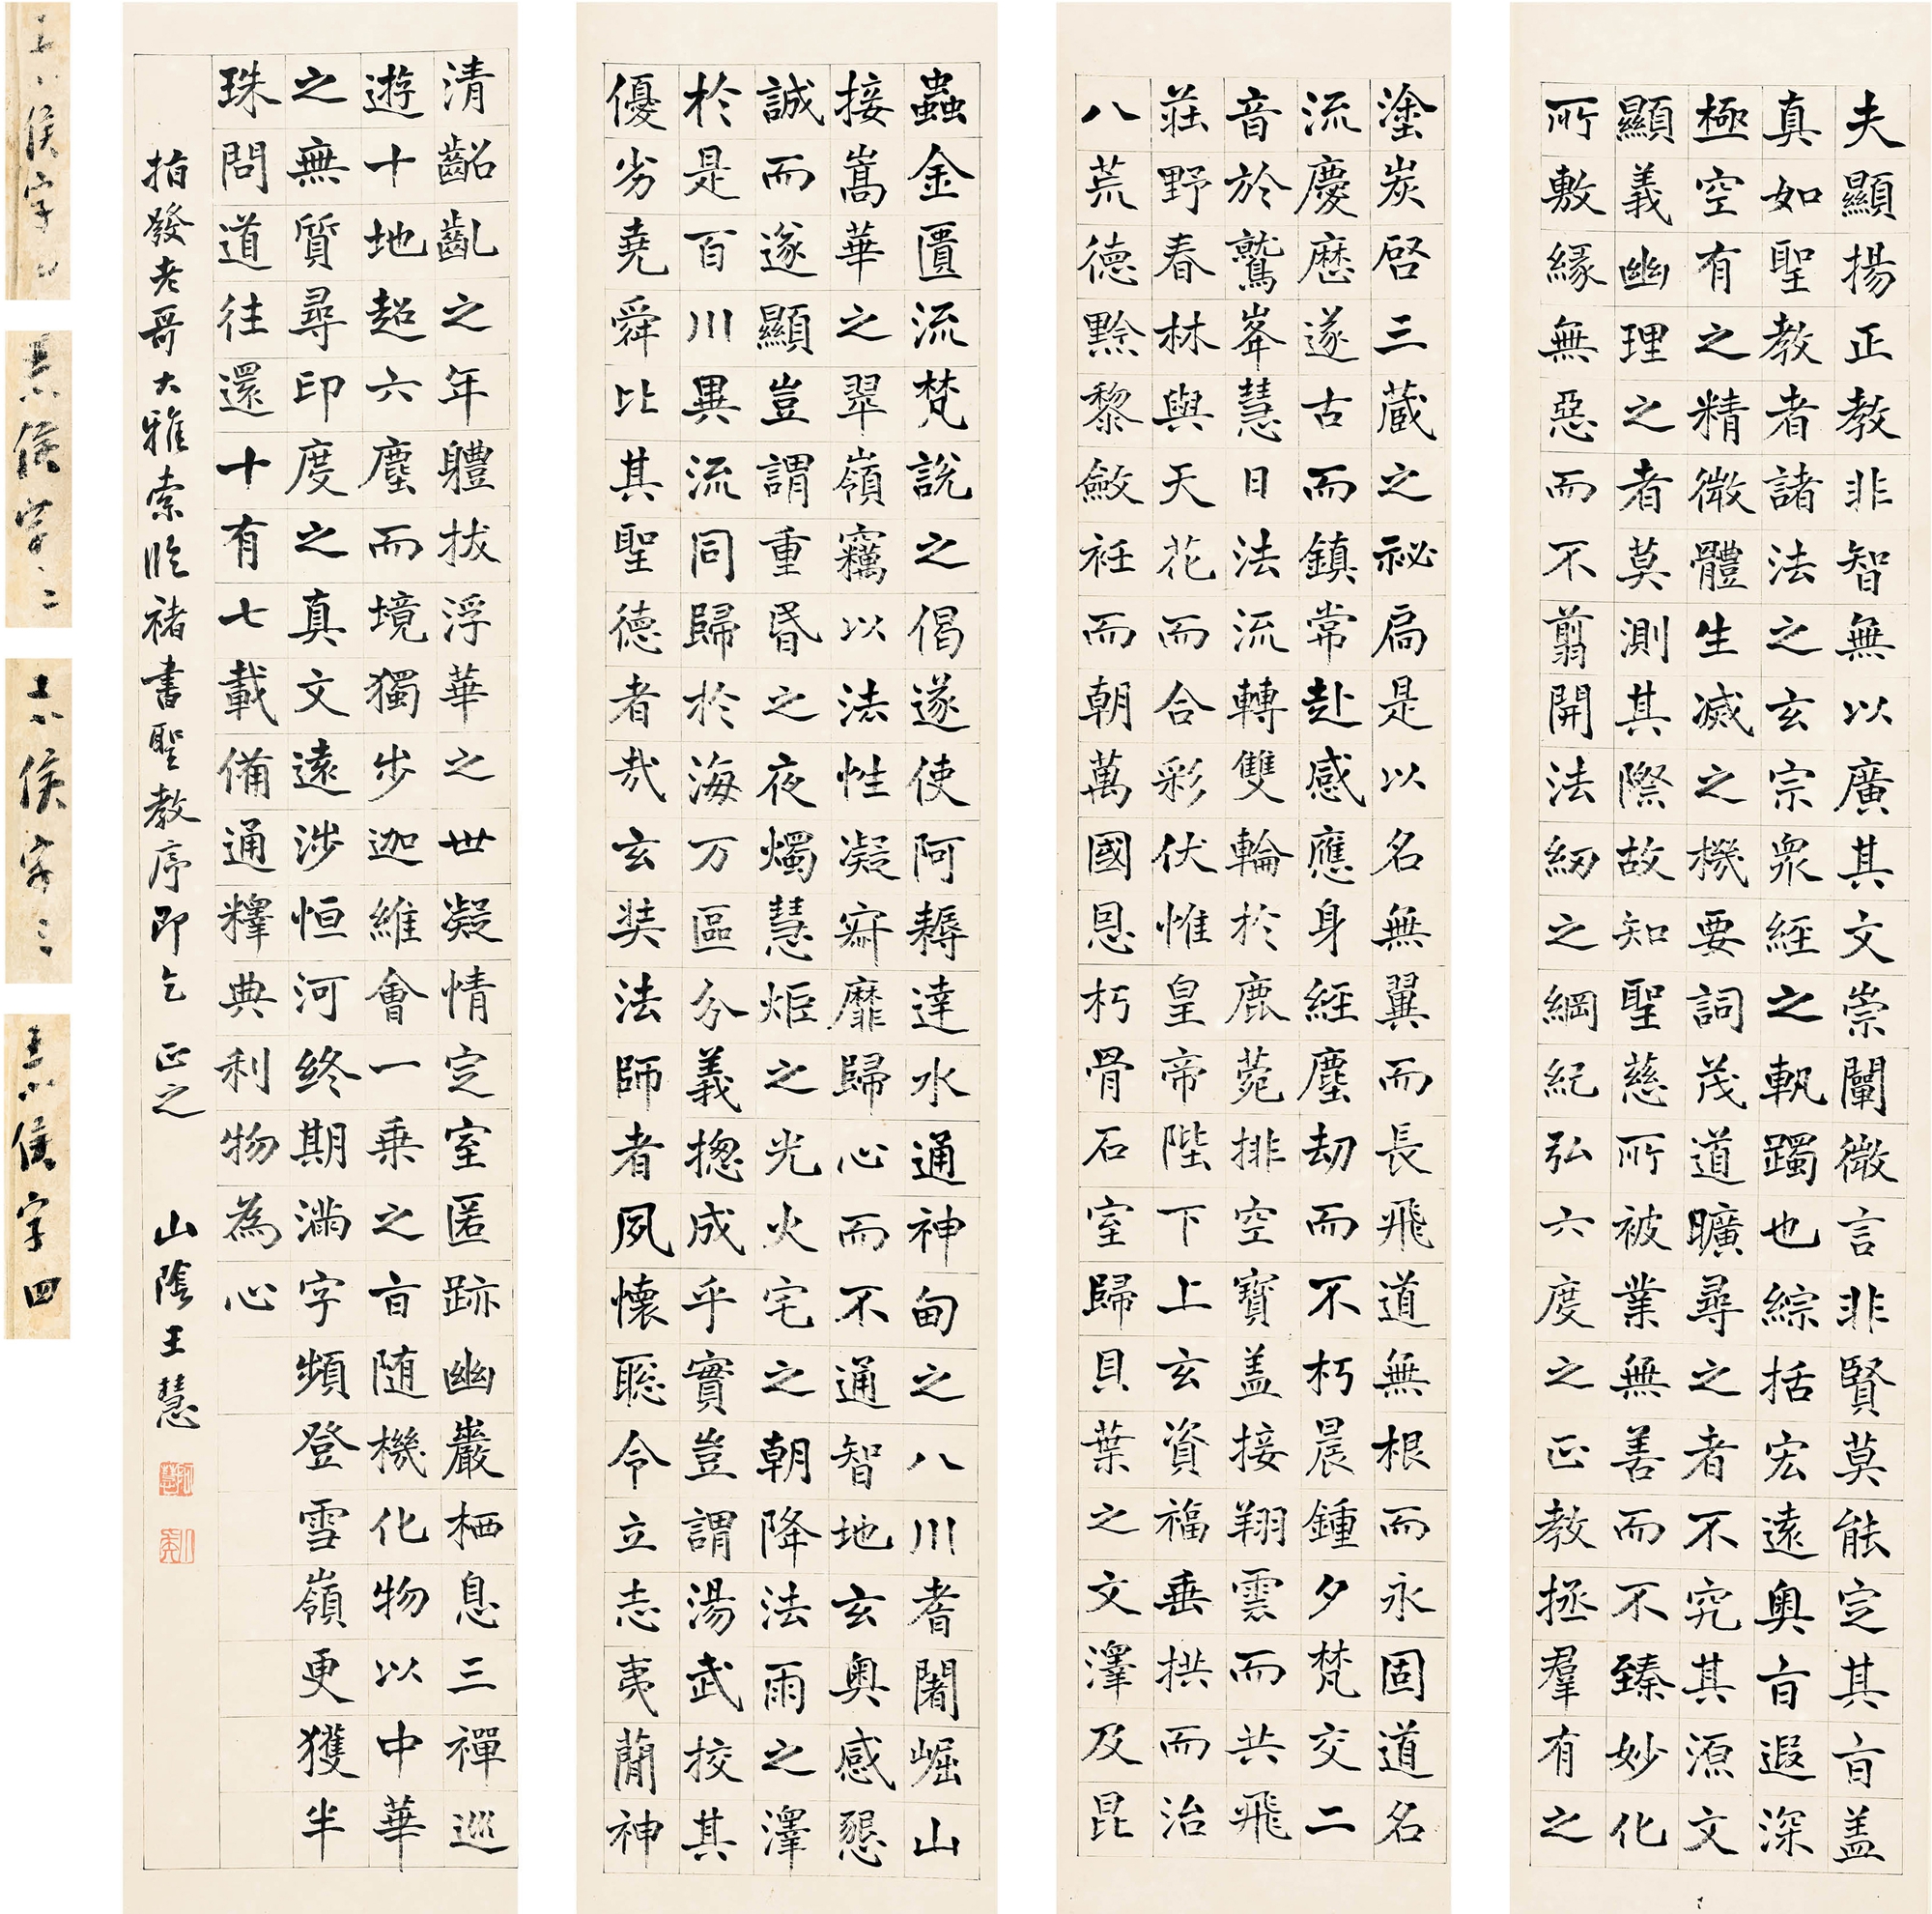 夫顯揚正教非智無以廣其文崇闡微言非賢莫能定其旨盖
真如聖教者諸法之玄宗眾經之軌躅也綜括宏遠奧旨遐深
極空有之精微體生滅之機要詞茂道曠尋之者不究其源文
顯義幽理之者莫測其際故知聖慈所被業無善而不臻妙化
所敷緣無惡而不翦開法網之綱紀弘六度之正教拯羣有之
塗炭啓三藏之祕扃是以名無翼而長飛道無根而永固道名
流慶歷遂古而鎮常赴感應身經塵劫而不朽晨鍾夕梵交二
音於鷲峯慧日法流轉雙輪於鹿菀排空寶盖接翔雲而共飛
莊野春林與天花而合彩伏惟皇帝陛下上玄資福垂拱而治
八荒德黔黎斂衽而朝萬國恩朽骨石室歸貝葉之文澤及昆
蟲金匱流梵說之偈遂使阿耨達水通神甸之八川耆闍崛山
接嵩華之翠嶺竊以法性凝寂靡歸心而不通智地玄奧感懇
誠而遂顯豈謂重昏之夜燭慧炬之光火宅之朝降法雨之澤
於是百川異流同歸於海万區分義摠成乎實豈謂湯武挍其
優劣堯舜比其聖德者哉玄奘法師者夙懷聰令立志夷簡神
清齠齓之年體拔浮華之世凝情定室匿跡幽巖栖息三禪巡
遊十地超六塵而境獨步迦維會一乘之旨随機化物以中華
之無質尋印度之真文遠涉恒河終期滿字頻登雪嶺更獲半
珠問道往還十有七載備通釋典利物為心
指發老哥大雅索臨褚書聖教序即乞正之 山陰王慧
侯字
侯字二
侯字三
侯字四